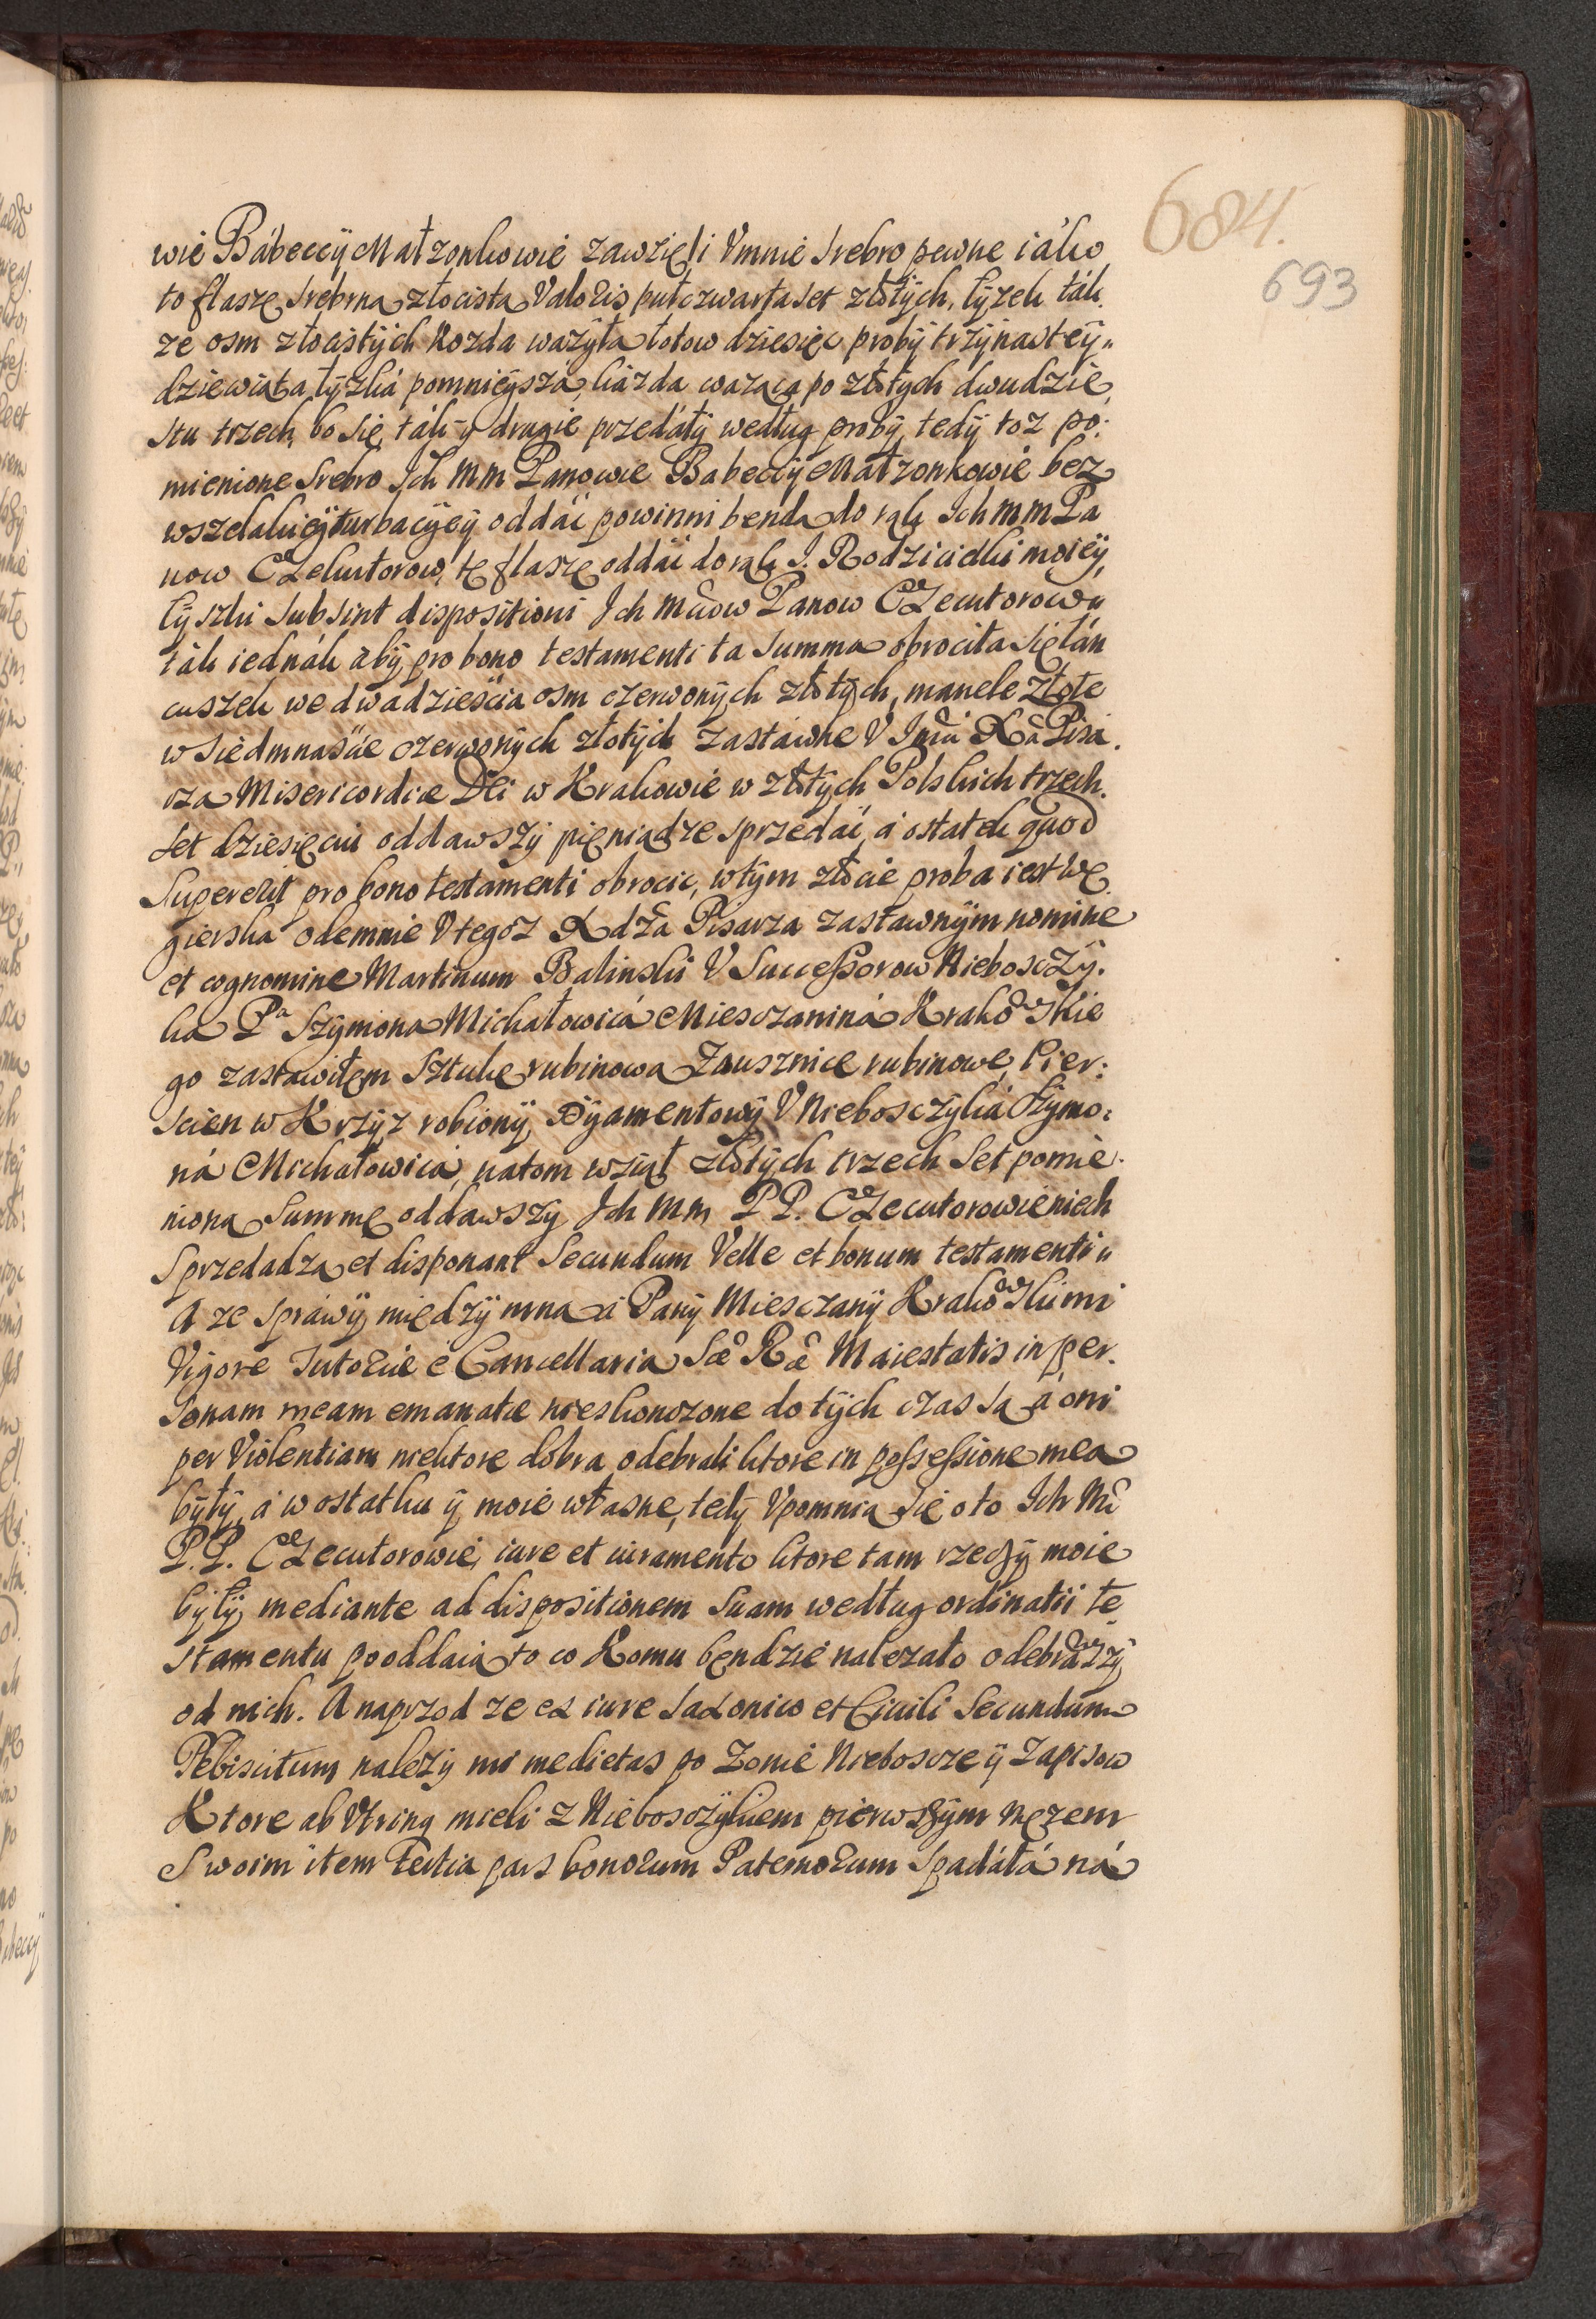 684.
693
wie Bábeccÿ Małzonkowie zawzięli Vmnie srebro pewne iáko
to flaszę srebrna złocista Valoris pułczwarta set złotÿch, łÿzek ták
ze osm złocistÿch kozda wazÿła łotow dziesięc probÿ trzÿnastey„
dziewiąta łÿzká pomnieÿszá, kázda wazaca po złotÿch dwudzie
stu trzech, bo się ták y drugie przedáłÿ według probÿ, tedÿ toz po:
mienione srebro Ich mm Panowie Babeccÿ Małzonkowie bez
wszelakieÿ turbacÿeÿ oddáć powinni benda do rąk Ich mm Pa
now Exekutorow, tę flaszę oddáć do rąk J. Rodzicielki moieÿ,
łÿszki subsint dispositioni Ich Mćiow Panow Executorow„
ták iednák abÿ pro bono testamenti ta summa obrociła się łán
cuszek we dwadzieścia osm czerwonÿch złotÿch, manele złote
w siedmnaście czerwonÿch złotÿch zastáwne V Jmći Xá Pisá.
rza Misericordiæ Dei w Krakowie w złotÿch Polskich trzech.
set dziesięciu oddawszÿ pieniądze sprzedáć, á ostatek quod
Supererit pro bono testamenti obrocic, w tÿm złocie proba iest Wę
gierska odemnie V tegoz Xdzá Pisarza zastawnÿm nomine
et cognomine Martinum Balinski V Successorow Nieboszczÿ.
ka Pa Szÿmona Michałowicá Miesczaniná Krakowskie
go zastawiłem Sztukę rubinowa Zausznice rubinowe, Pier:
scien w Krzÿz robionÿ, Dÿamentowÿ V Nieboszczÿká Szÿmo:
ná Michałowicá, natom wziął złotÿch trzech set pomie.
niona Summę oddawszy Ich Mm PP. Executorowie niech
Sprzedadza et disponant Secundum Velle et bonum testamenti„
A ze sprawÿ międzÿ mna á Panÿ Miesczanÿ Krakowskimi
Vigore Tutoriæ e Cancellaria Sæ Ræ Maiestatis in per.
sonam meam emanatæ nieskonczone do tÿch czas są á oni
per Violentiam niektore dobra odebrali ktore in possessione mea
bÿłÿ, á w ostatku ÿ moie własne, tedÿ Vpomnia sie o to Ich Mć
P.P. Executorowie, iure et iuramento ktore tam rzeczÿ moie
bÿłÿ, mediante ad dispositionem suam według ordinatii te
stamentu pooddaią to co komu bendzie nalezało odebrawszÿ
od nich. A naprzod ze ex iure Saxonico et Ciuili Secundum
Plebiscitum nalezÿ mi medietas po Zonie Nieboszce ÿ zapisow
Ktore ab Vtrinq mieli z Nieboszczÿkiem pierwszÿm męzem
Swoim item Tertia pars bonorum Paternorum Spadáłá ná